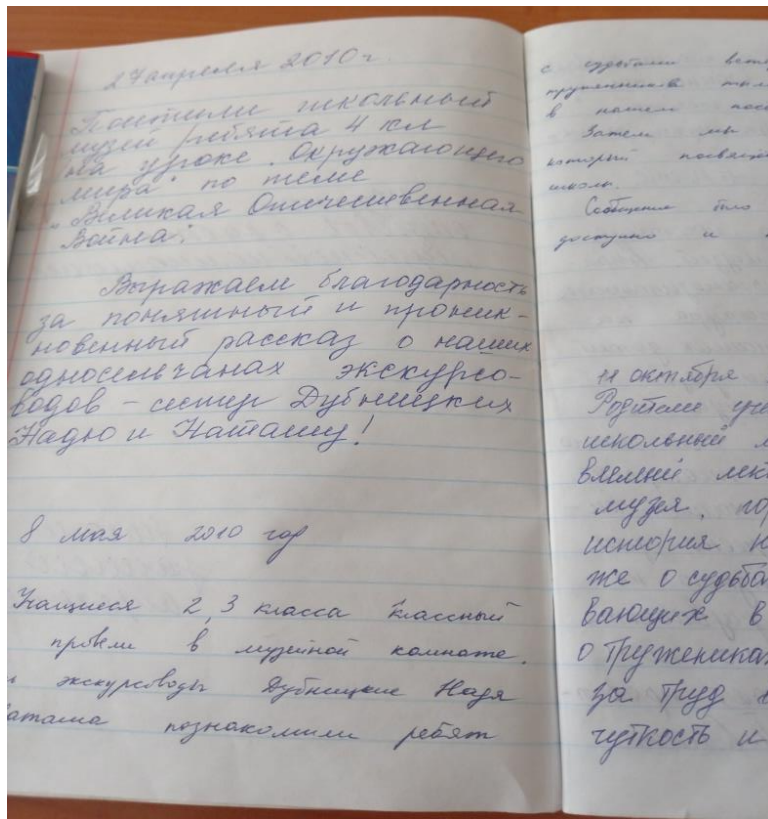 27 апреля 2010 г.
Посетили школьный
музей ребята 4 кл
на уроке „Окружающего
мира" по теме
„Великая Отечественная
Война".
Выражаем благодарность
за понятный и проник-
новенный рассказ о наших
односельчанах экскурсо-
водов - сестер Дубницких
Надю и Наташу!
8 мая 2010 год
Учащиеся 2, 3 класса классный
провели в музейной комнате.
экскурсоводы Дубницкие Надя
Наташа познакомили ребят
с судьбами
тружеников
в нашем
Затем мы
который
школы.
Сообщение было
доступно и
11 октября
Родители
школьный
музея,
история
же о
вающих в
о Тружениках
за Труд
чуткость и